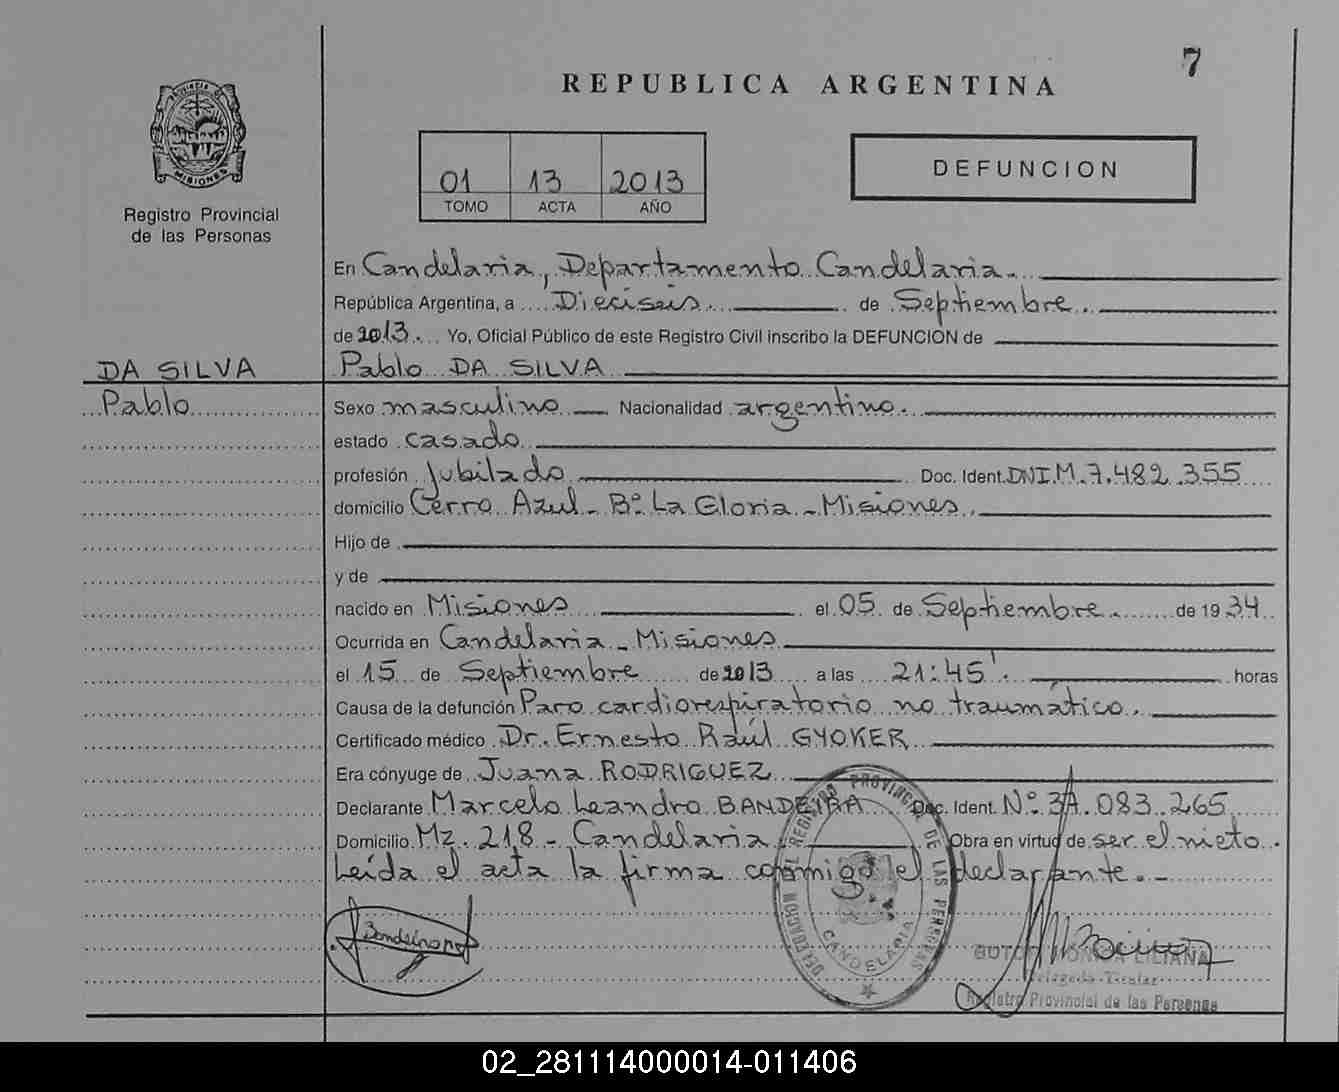 7
REPUBLICA ARGENTINA
PROVINCIA DE
MISIONES
Registro Provincial
de las Personas
01 13 2013
TOMO ACTA AÑO
DEFUNCION
En Candelaria, Departamento Candelaria.
República Argentina, a Dieciseis de Septiembre
de 2013 Yo, Oficial Público de este Registro Civil inscribo la DEFUNCION de
DA SILVA
Pablo
Pablo DA SILVA
Sexo masculino Nacionalidad argentino.
estado casado
profesión Jubilado Doc. Ident. DNI.M.7.482.355
domicilio Cerro Azul - Bº La Gloria - Misiones.
Hijo de
y de
nacido en Misiones el 05 de Septiembre de 1934
Ocurrida en Candelaria - Misiones
el 15 de Septiembre de 2013 a las 21:45' horas
Causa de la defunción Paro cardiorespiratorio no traumático.
Certificado médico Dr. Ernesto Raúl GYOKER
Era cónyuge de Juana RODRIGUEZ
Declarante Marcelo Leandro BANDEIRA Doc. Ident. Nº 37.083.265
Domicilio Mz. 218 - Candelaria Obra en virtud de ser el nieto.
Leída el acta la firma conmigo el declarante. -
DELEGACION DEL REGISTRO PROVINCIAL DE LAS PERSONAS
CANDELARIA
LILIANA
Delegada Titular
Registro Provincial de las Personas
02_281114000014-011406